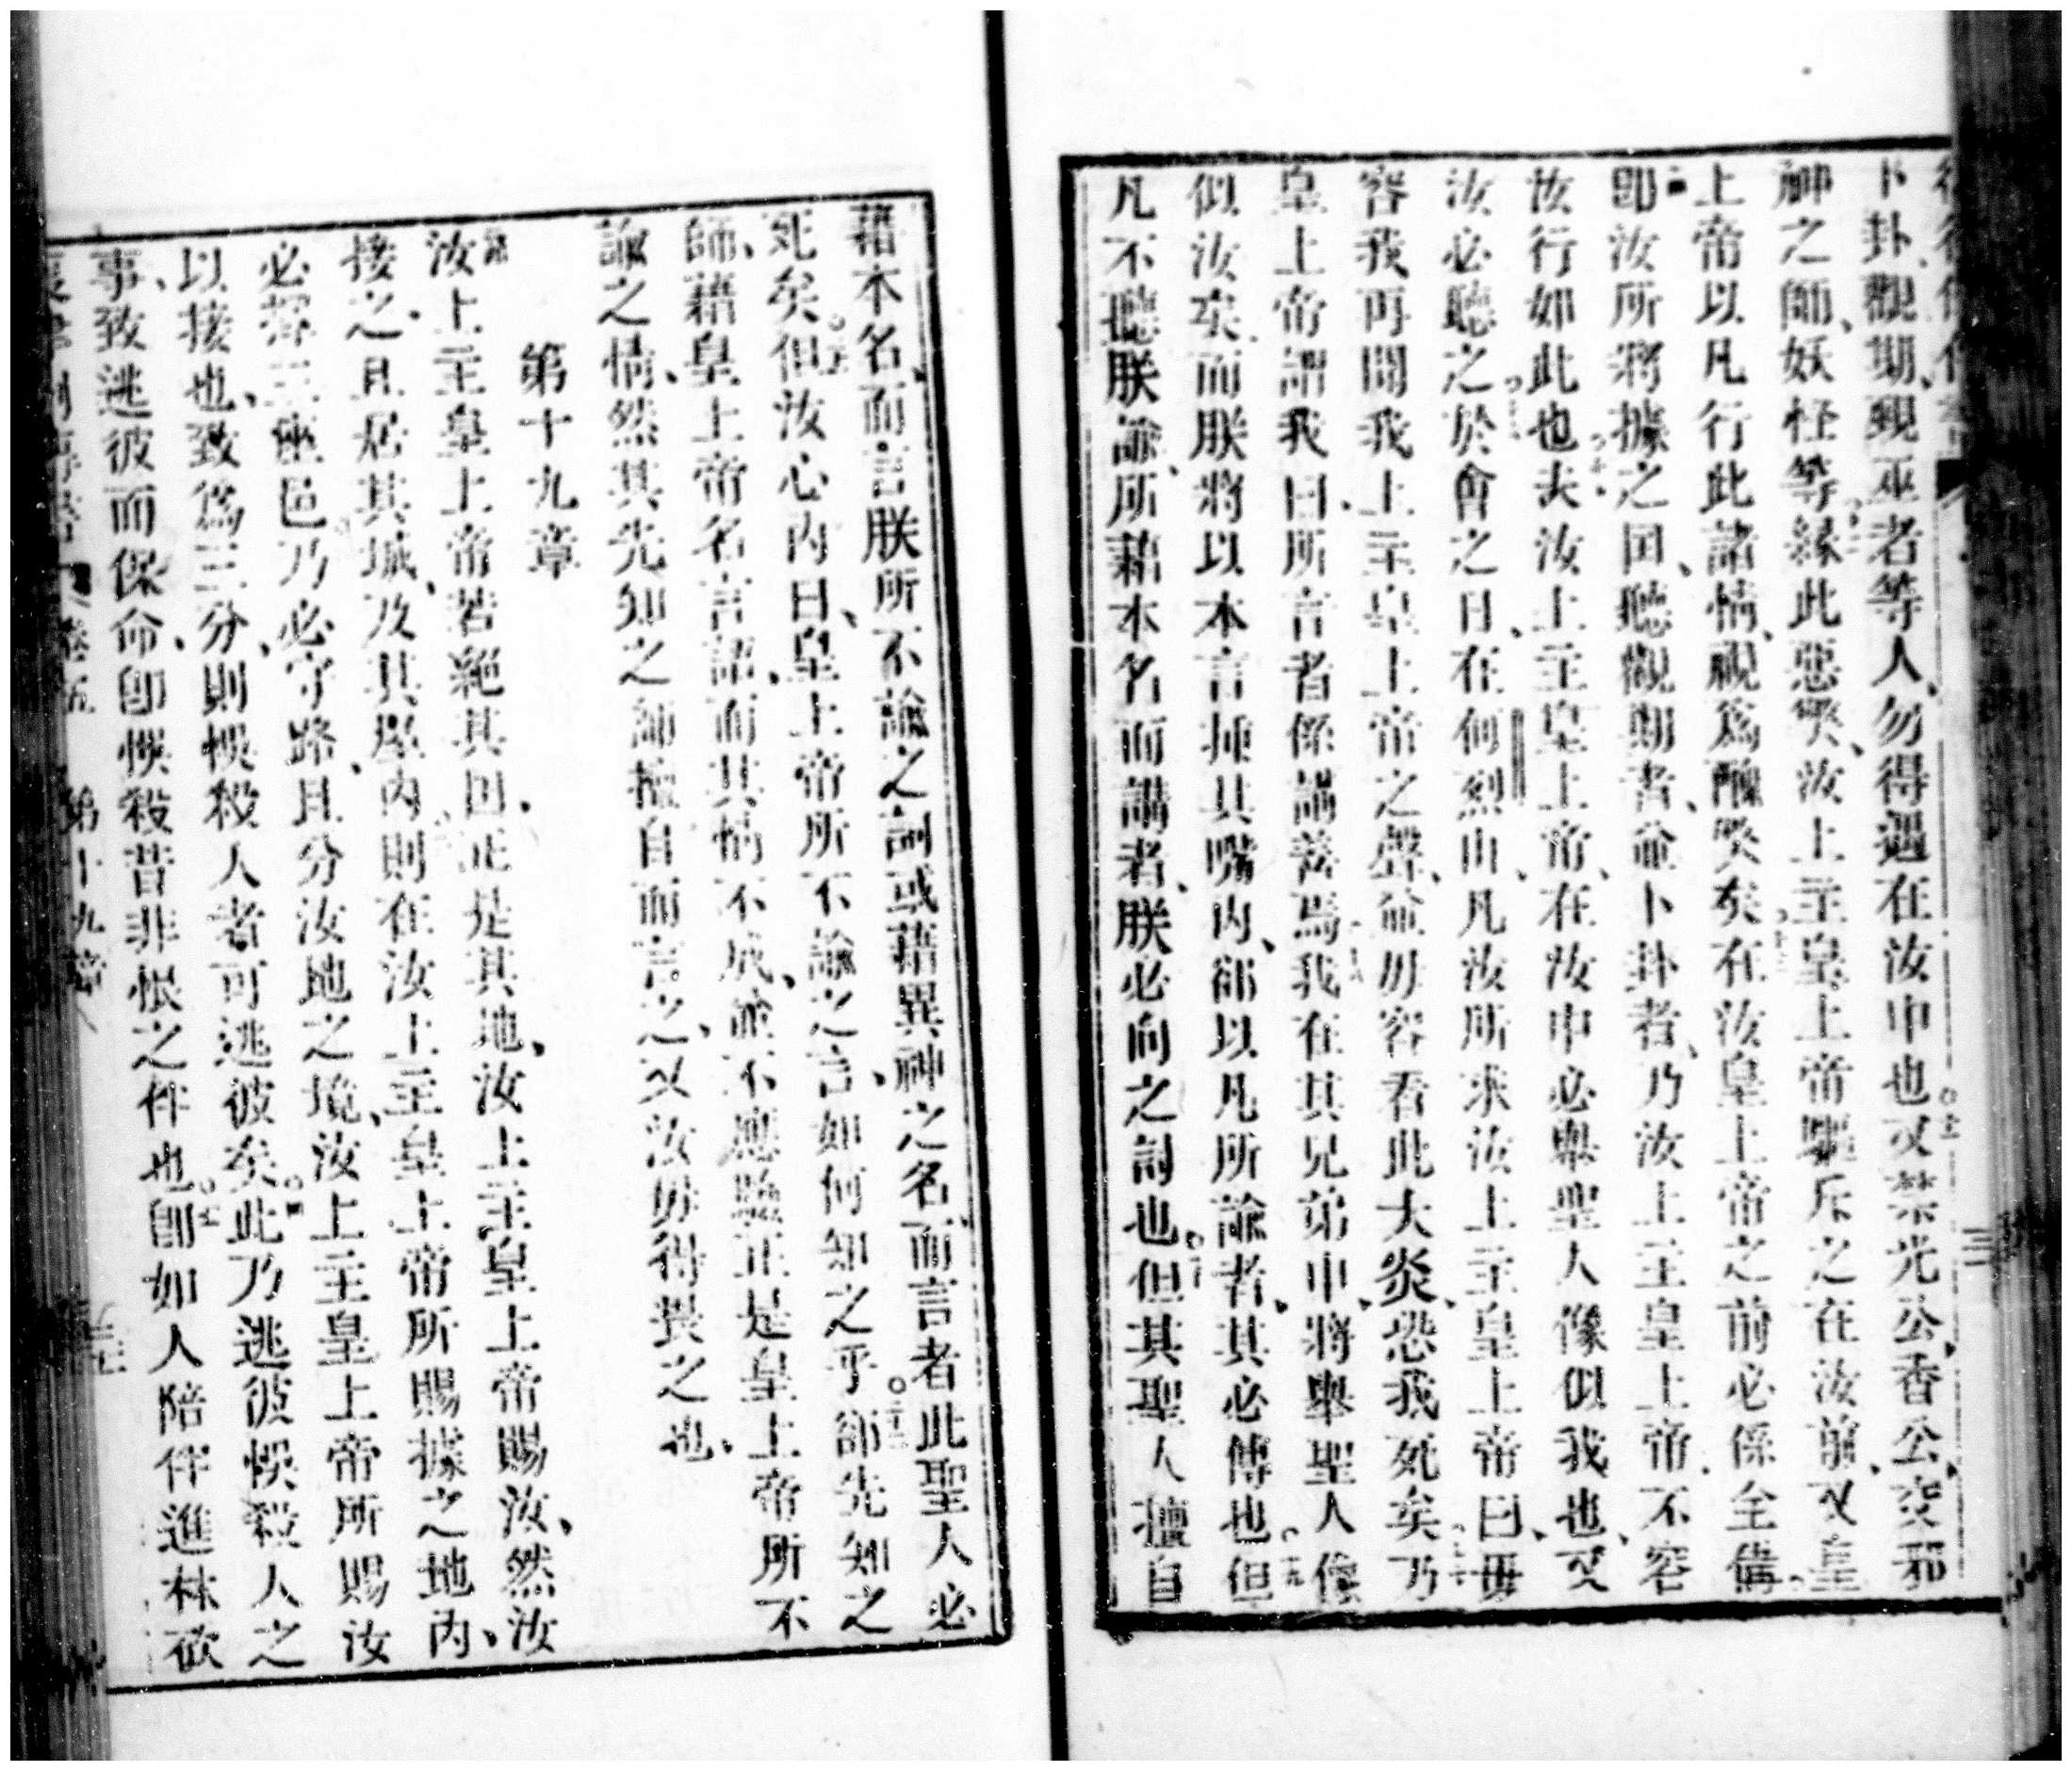 卜卦、觀期、覡巫者等人、勿得遇在汝中也。十一又禁光公、香公、交邪
神之師、妖怪等。十二緣此惡獘、汝上主皇上帝驅斥之在汝前、又皇
上帝以凡行此諸情、視為醜獘矣。十三在汝皇上帝之前必係全備。
十四即汝所將據之囯、聽觀期者、並卜卦者、乃汝上主皇上帝、不容
汝行如此也。十五夫汝上主皇上帝、在汝中必舉聖人像似我也、又
汝必聽之。十六於會之日、在何烈山、凡汝所求汝上主皇上帝曰、毋
容我再聞我上主皇上帝之聲、並毋容看此大炎、恐我死矣。十七乃
皇上帝謂我曰、所言者係講善焉。十八我在其兄弟中、將舉聖人像
似汝矣、而朕將以本言揷其嘴內、郤以凡所諭者、其必傳也。十九但
凡不聽朕諭、所藉本名而講者、朕必向之討也。二十但其聖人擅自
藉本名、而言朕所不諭之詞、或藉異神之名、而言者、此聖人必
死矣。二一但汝心內曰、皇上帝所不諭之言、如何知之乎。二二郤先知之
師、藉皇上帝名言詔、而其情不成、並不應驗、正是皇上帝所不
諭之情、然其先知之師擅自而言之、又汝毋得畏之也。
第十九章
一汝上主皇上帝若絕其囯、正是其地、汝上主皇上帝賜汝、然汝
接之、且居其城、及其屋內。二則在汝上主皇上帝所賜據之地內、
必擇三座邑。三乃必守路、且分汝地之境、汝上主皇上帝所賜汝
以接也、致為三分、則悞殺人者可逃彼矣。四此乃逃彼悞殺人之
事、致逃彼而保命、即悞殺昔非恨之伴也。五即如人陪伴進林砍
卷五 第十九章